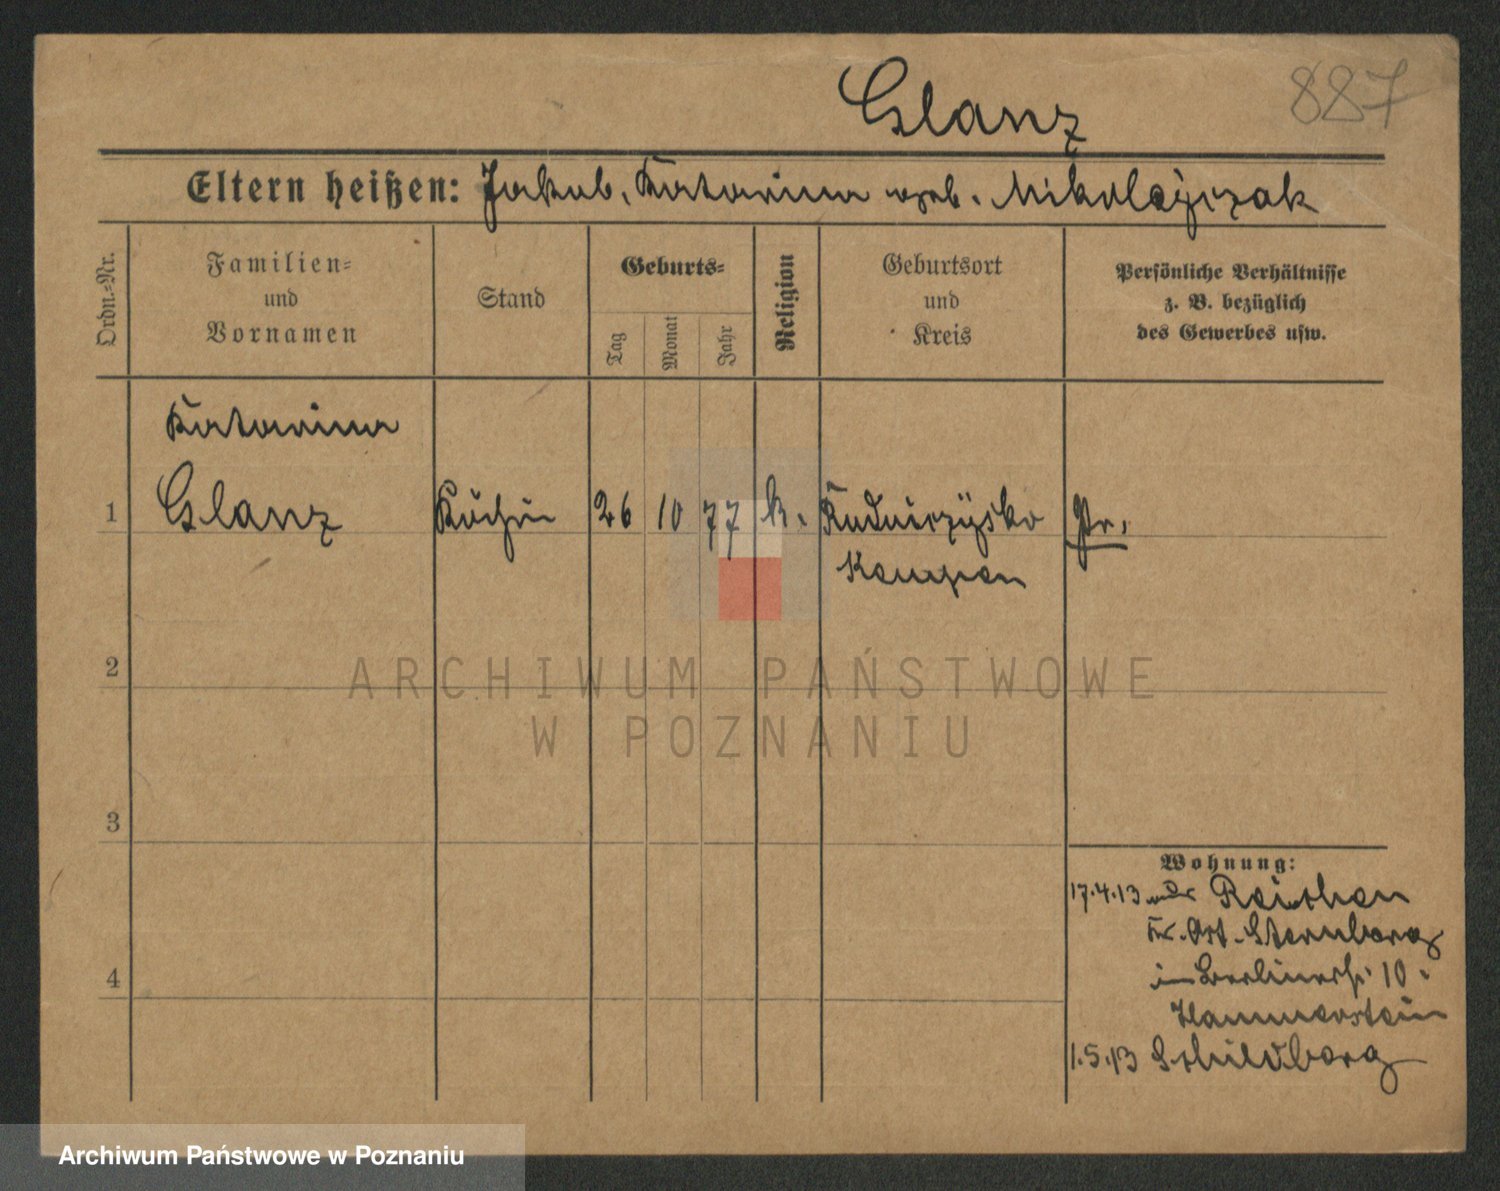 Glanz
887
Eltern heißen: Jakob, Katarina geb. Mikolajczak
Ordn.=Nr.
Familien=
und
Vornamen
Stand
Geburts=
Tag
Monat
Jahr
Religion
Geburtsort
und
Kreis
Persönliche Verhältnisse
z. B. bezüglich
des Gewerbes usw.
Katarina
1 Glanz Köchin 26 10 77 k. Pr.
Kempen
2
ARCHIWUM PAŃSTWOWE
W POZNANIU
3
Wohnung:
17.4.13
Kr. Ost. Sternberg
in Berlinerstr. 10.
4
Hammerstein
1.5.13 Schildberg
Archiwum Państwowe w Poznaniu